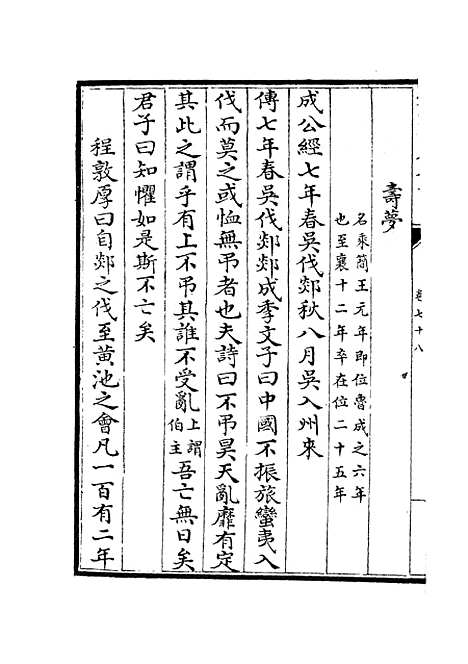 卷七十八
壽夢
名乘簡王元年即位魯成之六年
也至襄十二年卒在位二十五年
成公經七年春吳伐郯秋八月吳入州來
傳七年春吳伐郯郯成季文子曰中國不振旅蠻夷入
伐而莫之或恤無弔者也夫詩曰不弔昊天亂靡有定
其此之謂乎有上不弔其誰不受亂上謂伯主吾亡無日矣
君子曰知懼如是斯不亡矣
程敦厚曰自郯之伐至黃池之會凡一百有二年